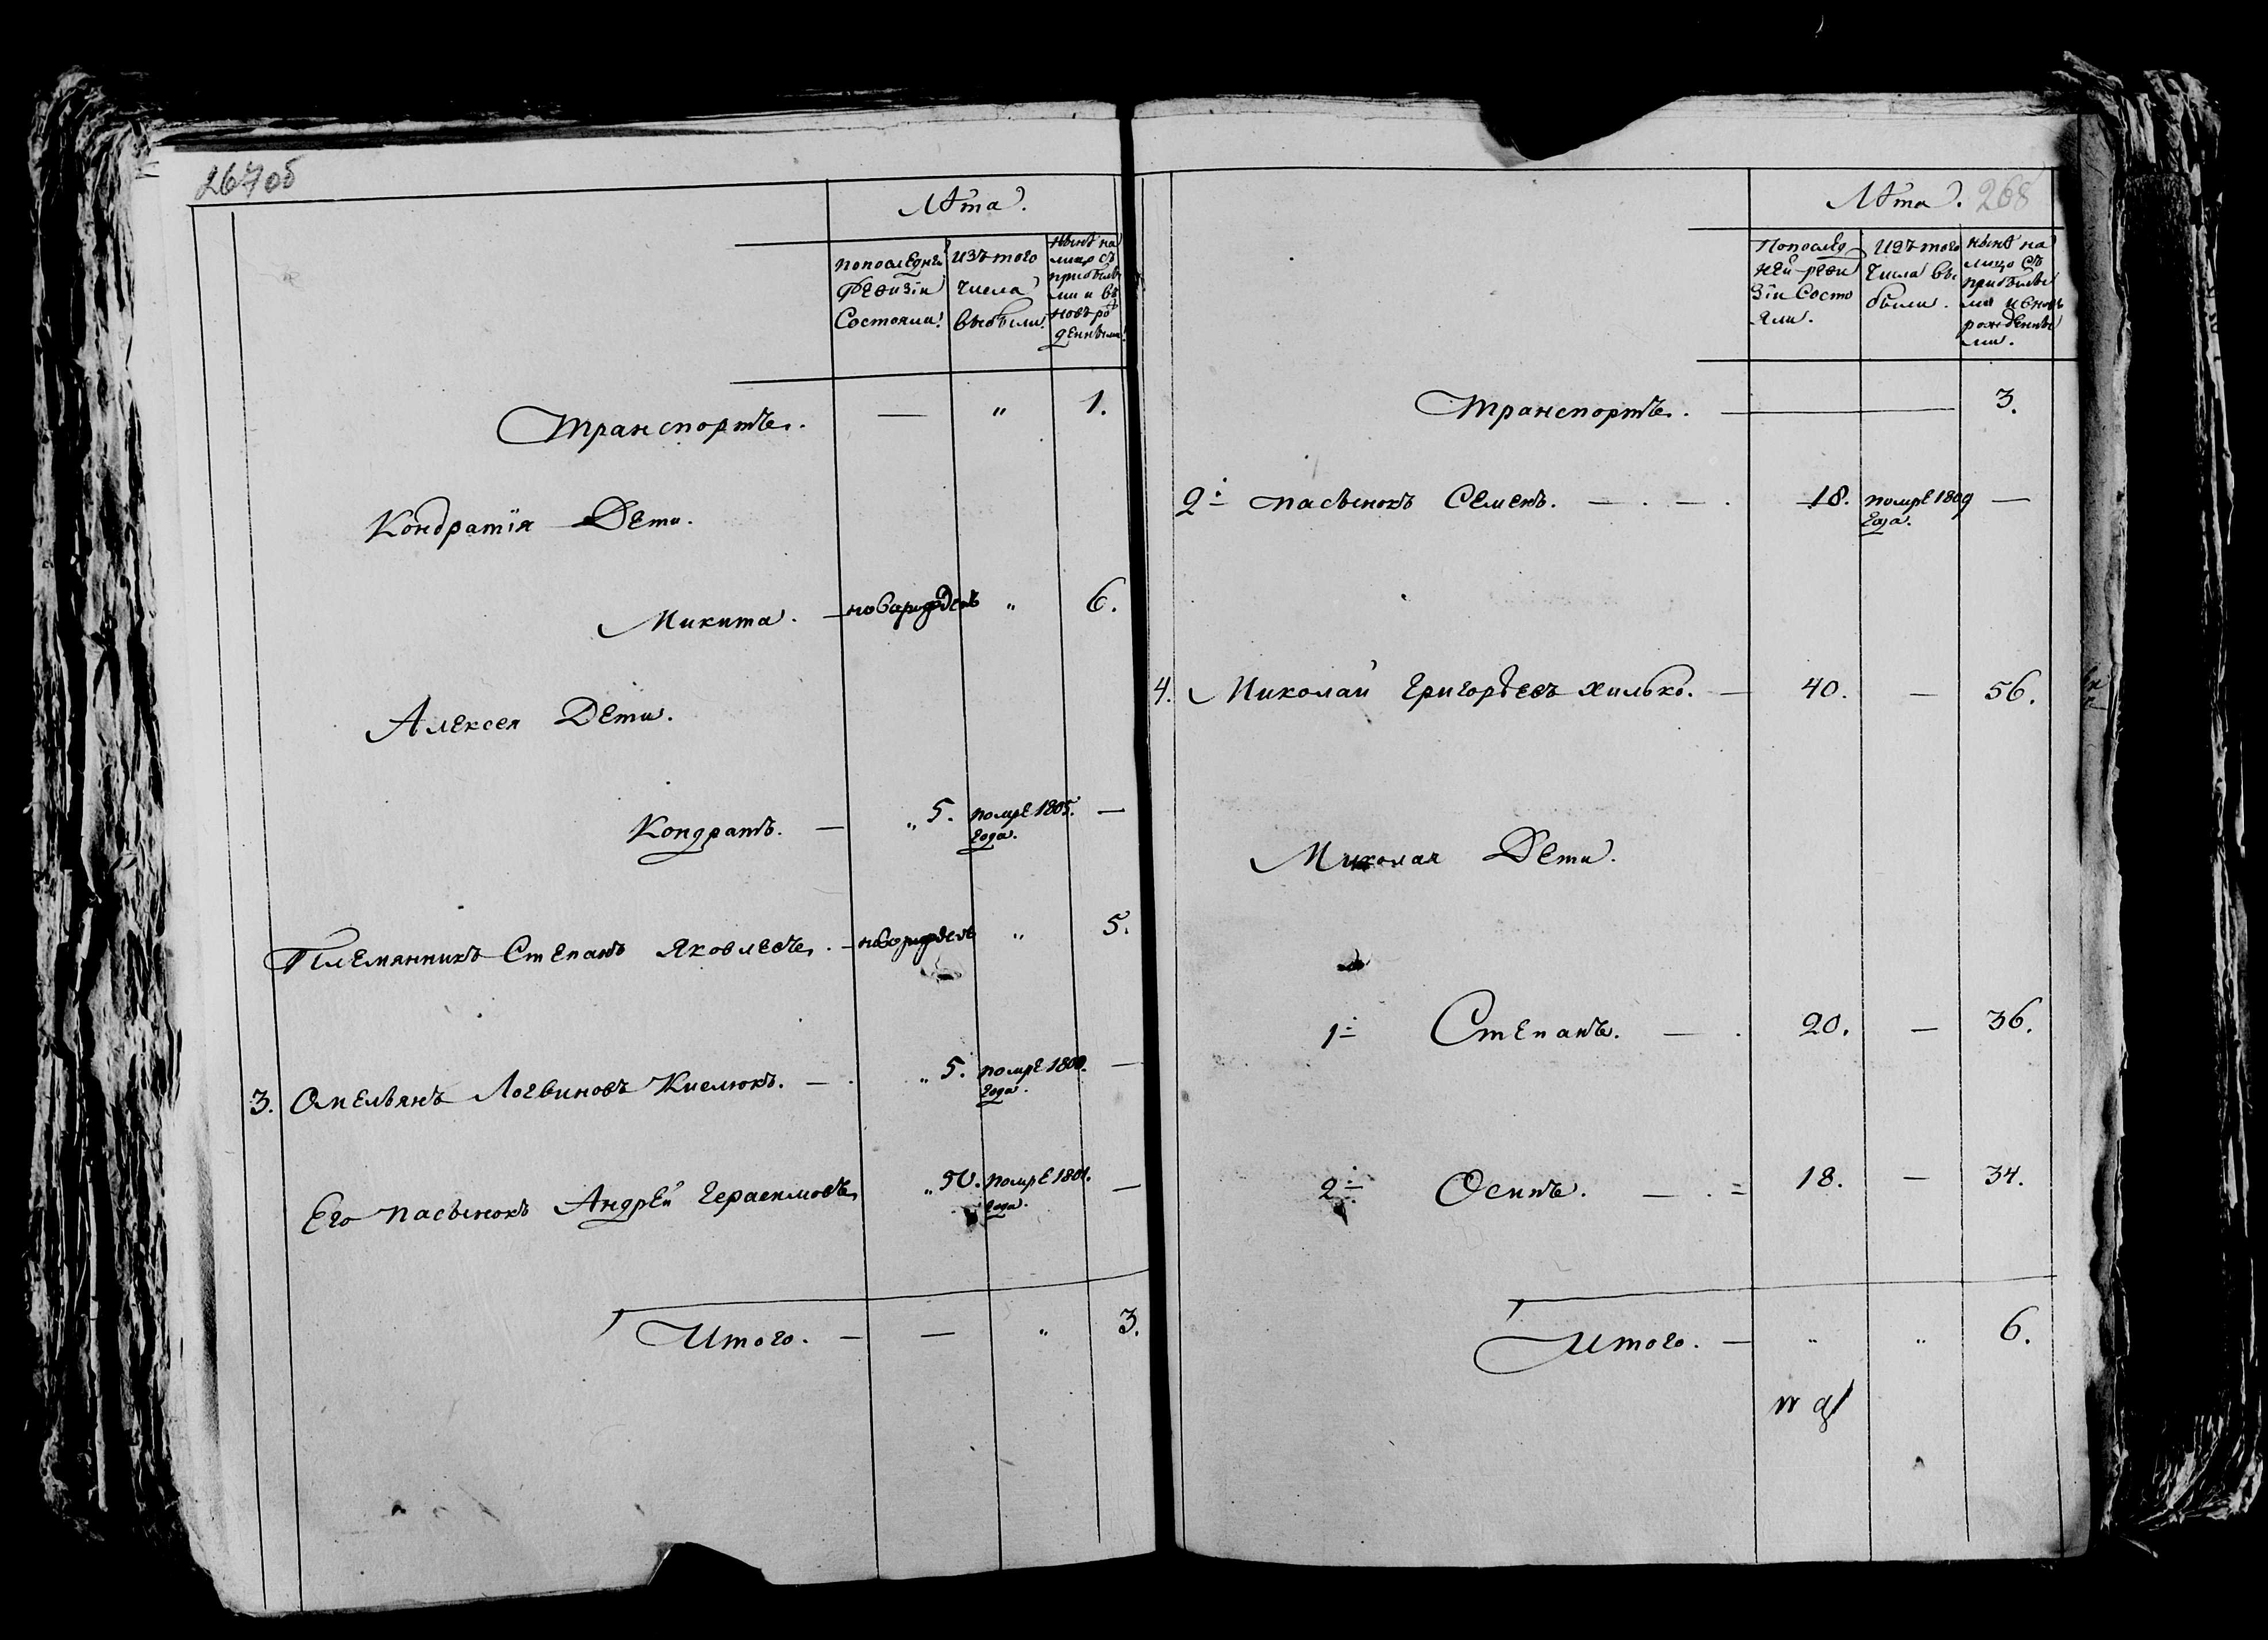 267об
Лѣта.
попоследней
Ревизіи
Состояли.
изътого
числа
выбыли.
Нынѣ на
лицо съ
прибылы
ми и въ
новь ро
денными
Транспортъ. — " 1.
Кондратія Дети.
Микита. — новорожденъ " 6.
Алексея Дети.
Кондратъ. — " 5. помре 1805. —
года.
Племянникъ Степанъ Яковлевъ. — новорожденъ " 5.
3. Омельянъ Логвиновъ Киелюкъ. — " 5. помре 1809. —
года.
Его пасынокъ Андрей Герасимовъ " 50. помре 1801. —
года.
Итого. — — " 3.
Лѣта. 268
Попослед
ней реви
зіи Состо
яли.
изътого
числа вы
были.
нынѣ на
лицо съ
прибылы
ми ивновь
рожденны
ми.
Транспортъ. — 3.
2. пасынокъ Семенъ. — . — . 18. помре 1809 —
года.
4. Миколай Григорьевъ хилько. — 40. — 56.
Миколая Дети.
1. Степанъ. — . 20. — 36.
2. Осипъ. — . = 18. — 34.
Итого. — " " 6.